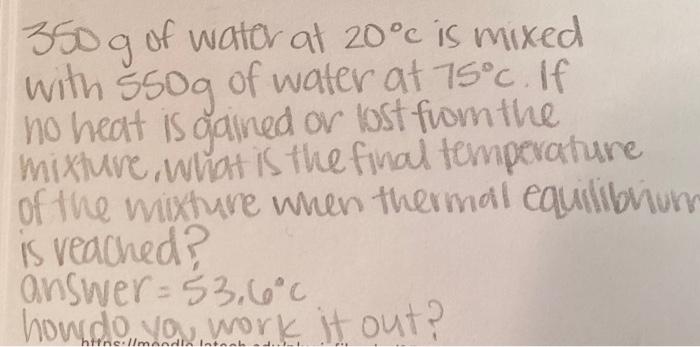 350 g of water at 20°c is mixed
with 550g of water at 75°c. If
no heat is gained or lost from the
mixture, what is the final temperature
of the mixture when thermal equilibrium
is reached?
answer = 53.6°c
how do you work it out?